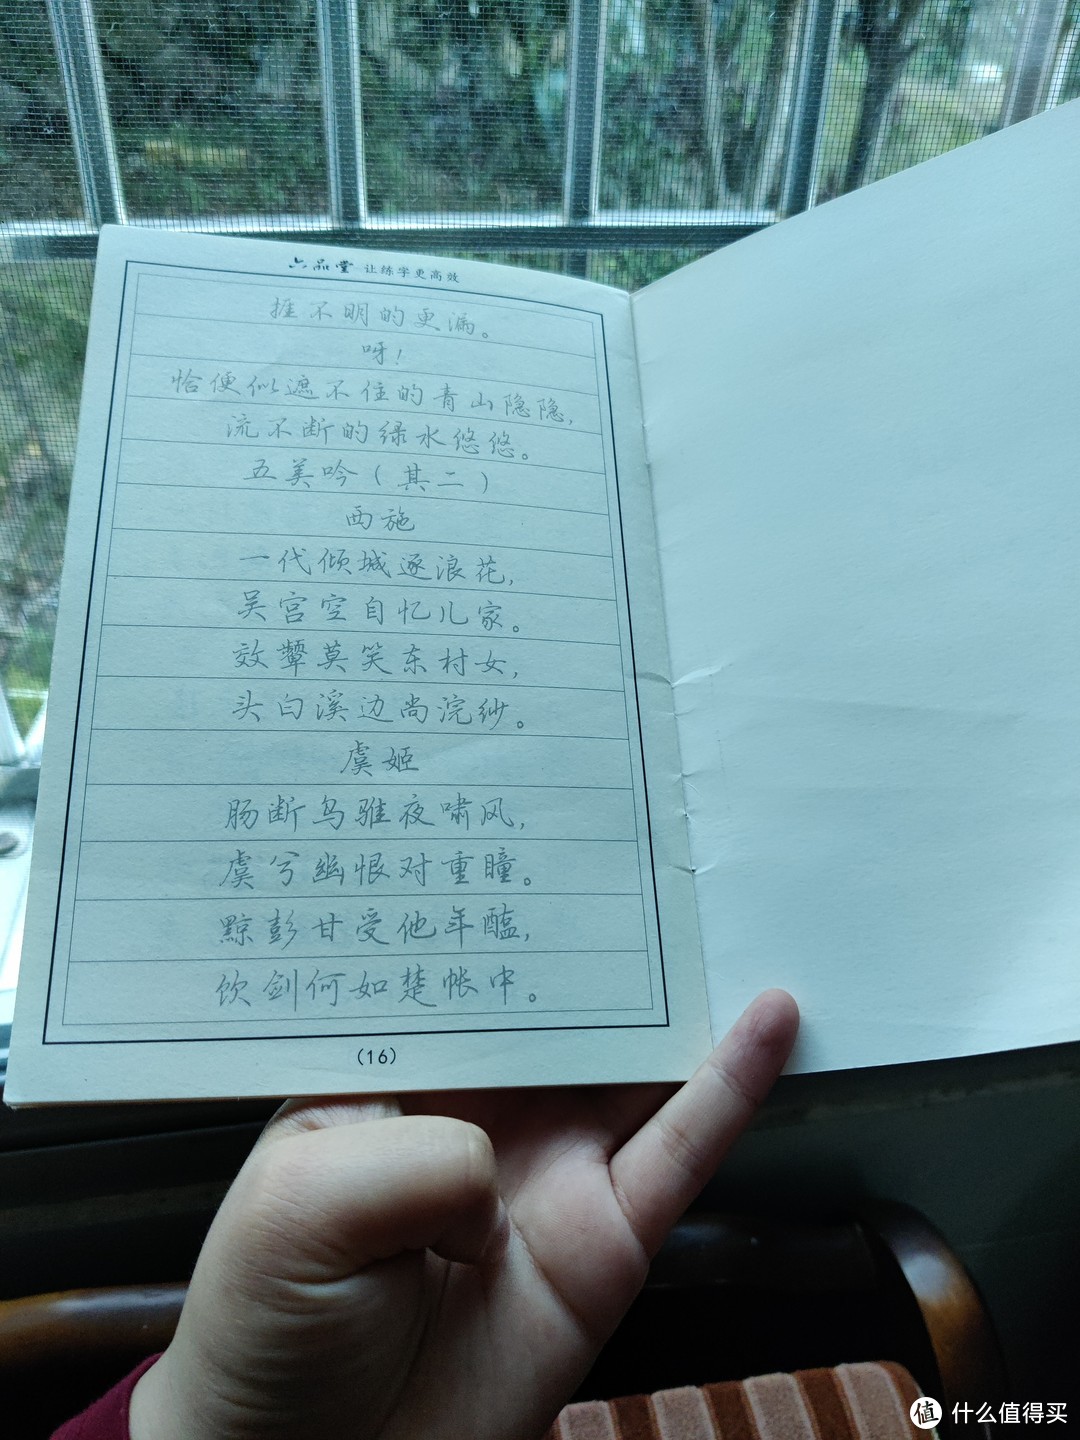 六品堂 让练字更高效
捱不明的更漏。
呀！
恰便似遮不住的青山隐隐，
流不断的绿水悠悠。
五美吟（其二）
西施
一代倾城逐浪花，
吴宫空自忆儿家。
效颦莫笑东村女，
头白溪边尚浣纱。
虞姬
肠断乌骓夜啸风，
虞兮幽恨对重瞳。
黥彭甘受他年醢，
饮剑何如楚帐中。
(16)
值 什么值得买